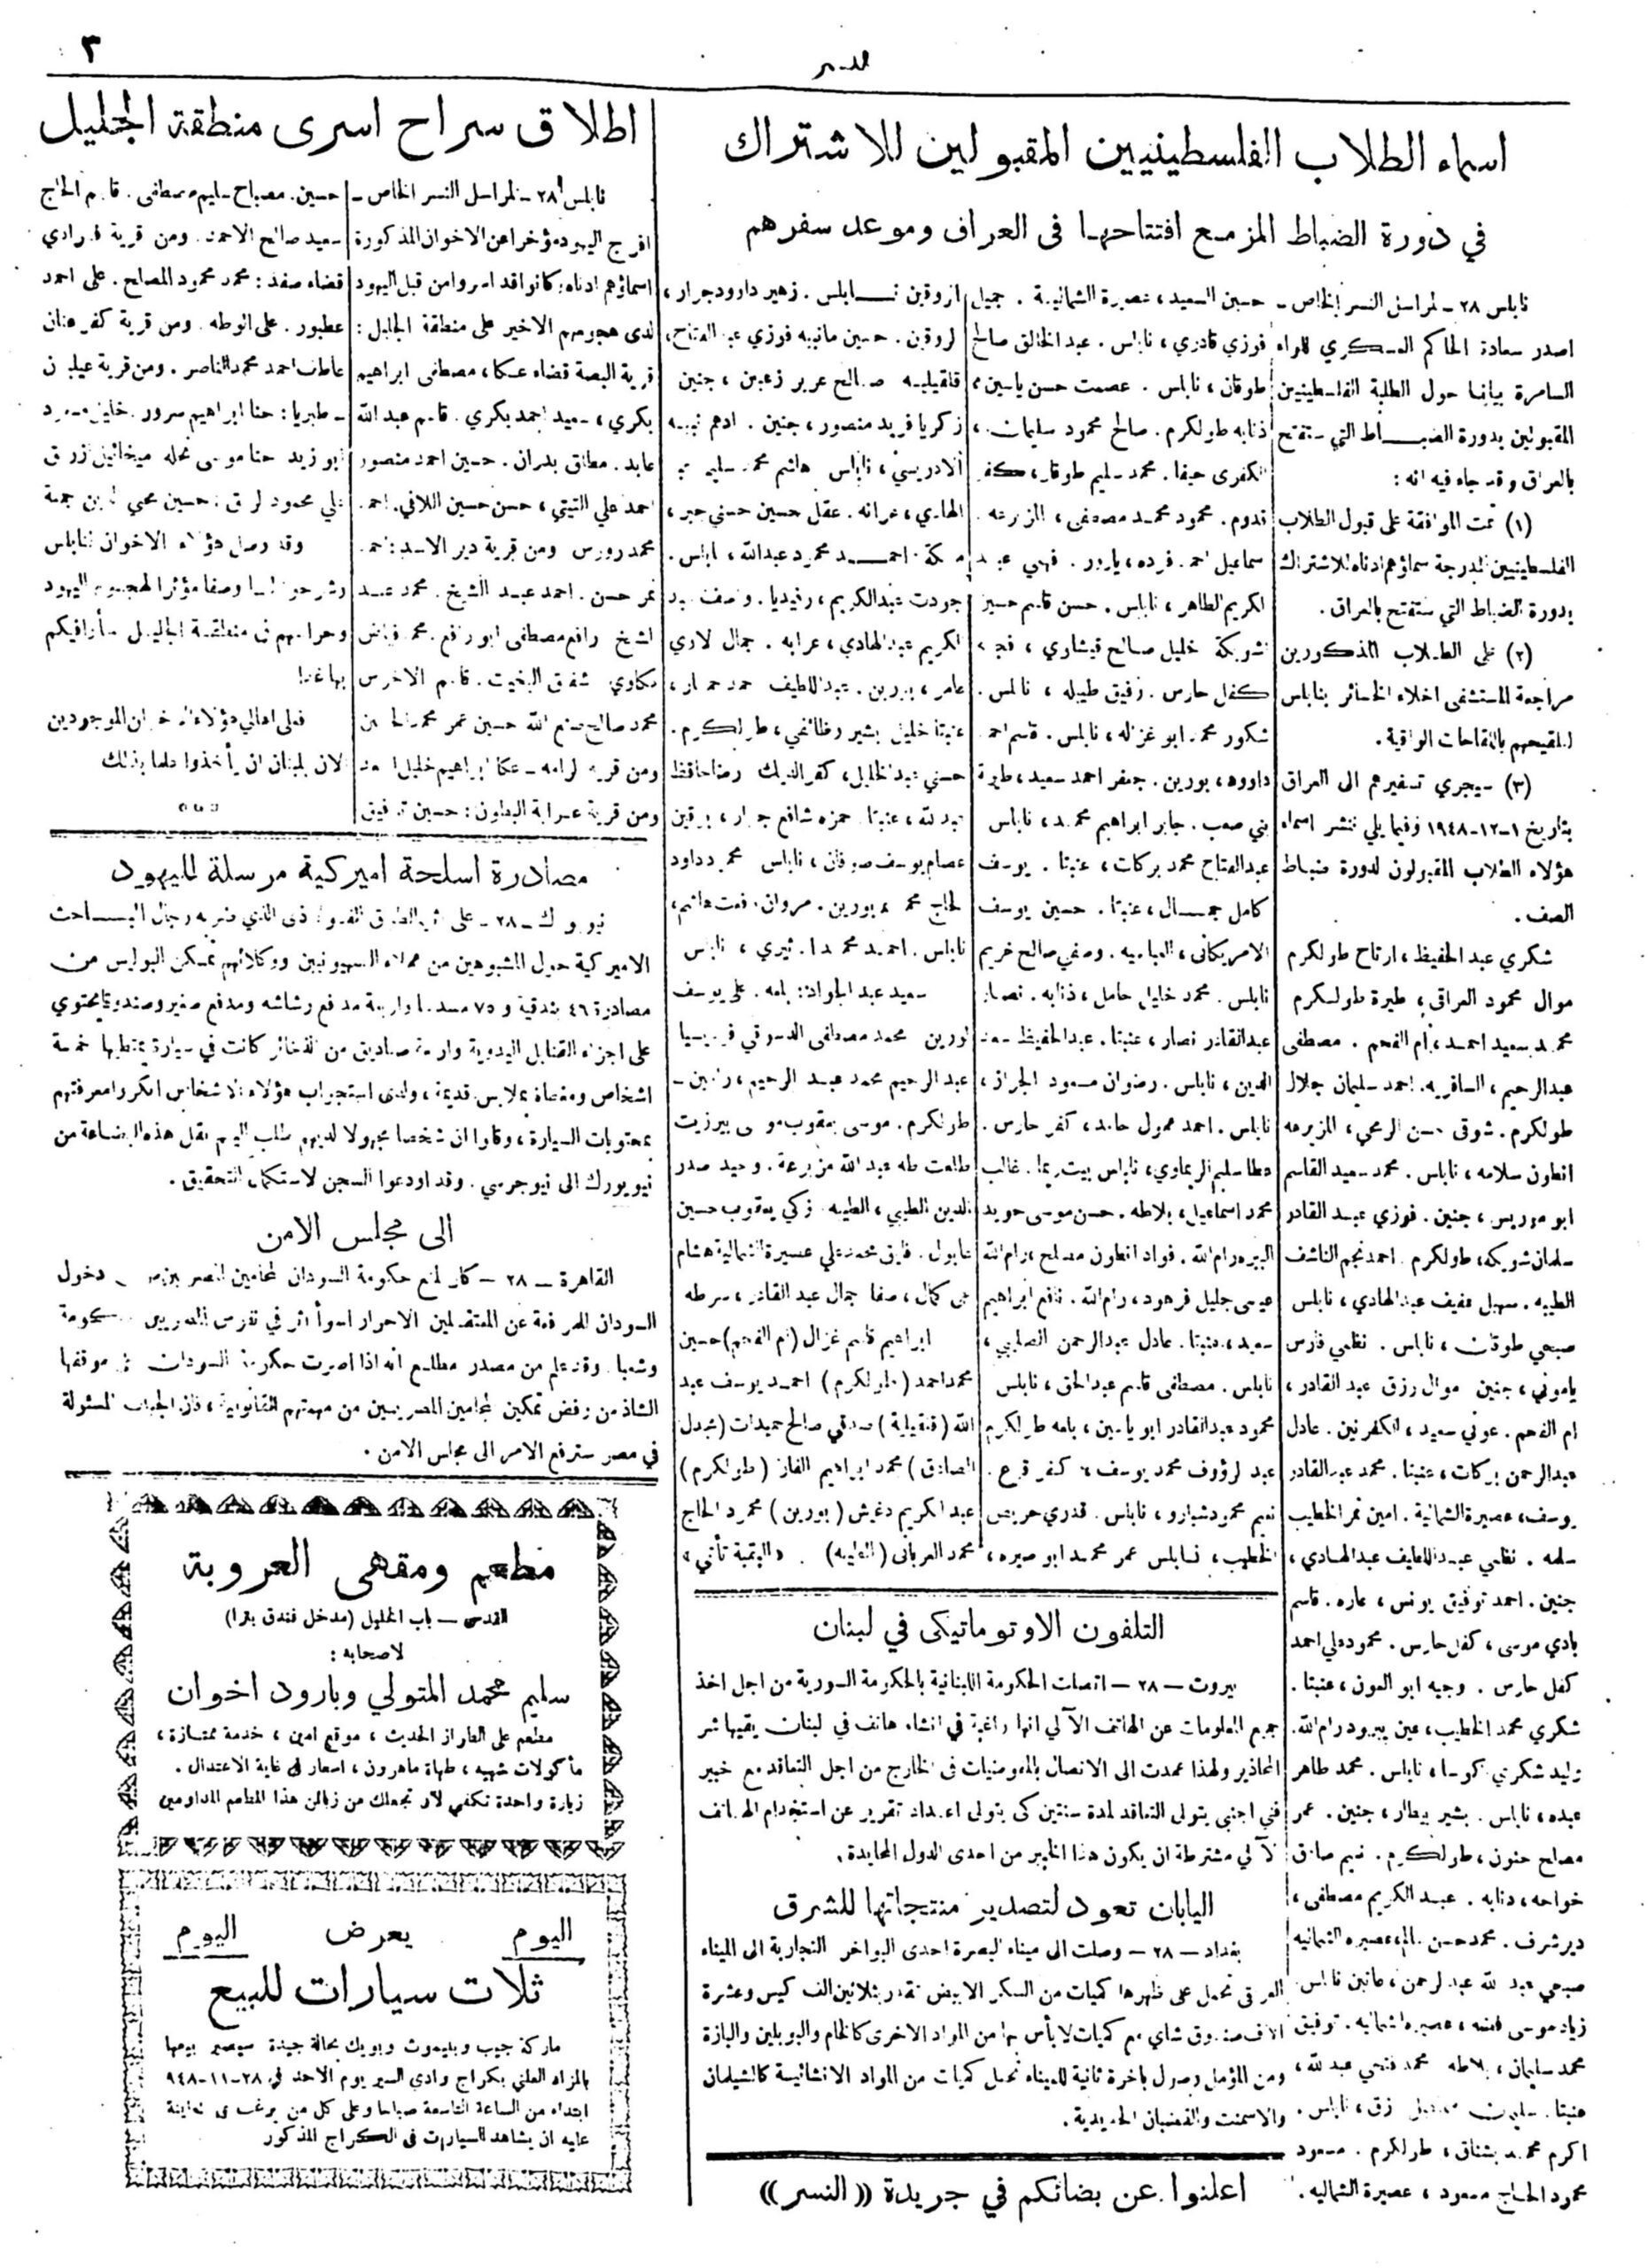 ٣
النسر
اسماء الطلاب الفلسطينيين المقبولين للاشتراك
في دورة الضباط المزمع افتتاحها في العراق وموعد سفرهم
نابلس ٢٨ - لمراسل النسر الخاص -
اصدر سعادة الحاكم العسكري للواء
السامرة بيانا حول الطلبة الفلسطينيين
المقبولين بدورة الضباط التي ستفتح
بالعراق وقد جاء فيه انه :
(١) تمت الموافقة على قبول الطلاب
الفلسطينيين المدرجة اسماؤهم ادناه للاشتراك
بدورة الضباط التي ستفتح بالعراق .
(٢) على الطلاب المذكورين
مراجعة المستشفى اخلاء الخسائر بنابلس
لتلقيحهم باللقاحات الواقية .
(٣) سيجري تسفيرهم الى العراق
بتاريخ ١-١٢-١٩٤٨ وفيما يلي ننشر اسماء
هؤلاء الطلاب المقبولون لدورة ضباط
الصف .
شكري عبد الحفيظ ، ارتاح طولكرم
موال محمود العراقي ، طيرة طولكرم
محمد سعيد احمد ، ام الفحم . مصطفى
عبدالرحيم ، السافريه . احمد سليمان جلال
طولكرم . شوقي حسن الرعي ، المزيرعه
انطون سلامه ، نابلس . محمد سعيد القاسم
ابو موريس ، جنين . فوزي عبد القادر
سلمان شويكه ، طولكرم . احمد نجم الناشف
الطيبه . سهيل عفيف عبد الهادي ، نابلس
صبحي طوقان ، نابلس . نظمي فارس
ياموني ، جنين موال رزق عبد القادر ،
ام الفحم . عوني سعيد ، الكفرنين . عادل
عبدالرحمن بركات ، عنبتا . محمد عبد القادر
يوسف ، عصيرة الشمالية . امين نمر الخطيب
سلمه . نظمي عبد اللطيف عبد الهادي ،
جنين . احمد توفيق يونس ، عاره . قاسم
بادي موسى ، كفل حارس . محمود علي احمد
كفل حارس . وجيه ابو العون ، عنبتا .
شكري محمد الخطيب ، عين يبرود رام الله .
وليد شكري ، نابلس . محمد طاهر
عبده ، نابلس . بشير بيطار ، جنين . عمر
مصلح حنون ، طولكرم . نعيم صادق
خواجه ، دنابه . عبد الكريم مصطفى ،
ديرشرف . محمد حسن ، عصيره الشماليه
صبحي عبد الله عبد الرحمن ، نابلس .
زياد موسى ، عصيره الشماليه . توفيق
محمد سليمان ، بلاطه محمد فتحي عبد الله ،
عنبتا . رزق ، نابلس .
اكرم محمد بشناق ، طولكرم . مسعود
محمود الحاج مسعود ، عصيرة الشماليه .
حسين السعيد ، عصيرة الشمالية . جميل
فوزي قادري ، نابلس . عبد الخالق صالح
طوقان ، نابلس . عصمت حسن ياسين ،
ذنابه طولكرم . صالح محمود سليمان ،
الكفرى حيفا . محمد سليم طوقان ، كفر
قدوم . محمود محمد مصطفى ، المزرعه .
اسماعيل احمد فرده ، يازور . فهمي عبد
الكريم الطاهر ، نابلس . حسن قاسم حسين
شويكة خليل صالح قيشاري ،
كفل حارس . رفيق طبيله ، نابلس .
شكور محمد ابو غزاله ، نابلس . قاسم احمد
داوود ، بورين . جعفر احمد سعيد ، طيرة
بني صعب . جابر ابراهيم محمد ، نابلس
عبدالفتاح محمد بركات ، عنبتا . يوسف
كامل جمال ، عنبتا . حسين يوسف
الامريكاني ، العباسيه . وصفي صالح خريم
نابلس . محمد خليل حامل ، ذنابه . نصار
عبدالقادر نصار ، عنبتا . عبدالحفيظ سعد
الدين ، نابلس . رضوان مسعود الجراز ،
نابلس . احمد ممول حامد ، كفر حارس .
عطا سليم الريماوي ، نابلس بيت ريما . غالب
محمد اسماعيل ، بلاطه . حسن موسى حويد
البيره رام الله . فواد انطون مصلح ، رام الله
عيسى جليل فرهود ، رام الله . نافع ابراهيم
سعيد ، عنبتا . عادل عبدالرحمن الصليبي ،
نابلس . مصطفى قاسم عبدالحق ، نابلس
محمود عبدالقادر ابو ياسين ، طولكرم
عبد الرؤوف محمد يوسف ، كفر قرع .
نعيم محمود شبارو ، نابلس . قدري حريص
الخطيب ، نابلس عمر محمد ابو صبره ،
ازوقين نابلس . زهير داوود جرار ،
لزوقين . حسين فوزي عبد الفتاح ،
قلقيليه صالح عرير زعبين ، جنين
زكريا فريد منصور ، جنين . ادهم نبيه
الادريسي ، نابلس هاشم محمد سليم
الهادي ، عرابه . عقل حسين حسني جبر ،
مسكة . احمد محمود عبدالله ، نابلس .
جودت عبدالكريم ، رفيديا . واصف عبد
الكريم عبدالهادي ، عرابه . جمال لاري
عامر ، بورين . عبد اللطيف حمد حمدان ،
عنبتا خليل بشير وظائفي ، طولكرم .
حسني عبدالخليل ، كفر الديك رضا حافظ
عبد الله ، عنبتا . حمزه شافع جرار ، برقين
عصام يوسف صوفان ، نابلس محمود داود
الحاج محمد ، بورين . مروان رفعت هاشم ،
نابلس . احمد محمد ، نابلس
سعيد عبد الجواد . علي يوسف
بورين محمد مصطفى الدسوقي
عبد الرحيم محمد عبد الرحيم ، رامين -
طولكرم . موسى يعقوب موسى بيرزيت
طلعت طه عبد الله مزرعة . وحيد صدر
الدين الطيبي ، الطيبه . زكي يعقوب حسين
نابول . فايق محمد علي عصيرة الشمالية هشام
كمال ، صفا جمال عبد القادر ، سرطه
ابراهيم قاسم غزال (ام الفحم) حسين
محمد احمد (طولكرم) احمد يوسف عبد
الله (قلقيلية) صدقي صالح حميدات (مجدل
الصادق) محمد ابراهيم الفاز (طولكرم)
عبد الكريم دغيش (بورين) محمود الحاج
محمد العرباني (الطيبه) . «البقية تأتي»
التلفون الاوتوماتيكي في لبنان
بيروت - ٢٨ - اتصلت الحكومة اللبنانية بالحكومة السورية من اجل اخذ
جميع المعلومات عن الهاتف الآلي انها راغبة في انشاء هاتف في لبنان يقيها شر
المحاذير ولهذا عمدت الى الاتصال بالمفوضيات في الخارج من اجل التعاقد مع خبير
فني اجنبي يتولى التعاقد لمدة سنتين كي يتولى اعداد تقرير عن استخدام الهاتف
الآلي مشترطة ان يكون هذا الخبير من احدى الدول المحايدة .
اليابان تعود لتصدير منتجاتها للشرق
بغداد - ٢٨ - وصلت الى ميناء البصرة احدى البواخر التجارية الى الميناء
العراقي تحمل على ظهرها كميات من السكر الابيض تقدر بثلاثين الف كيس وعشرة
الاف صندوق شاي مع كميات لا بأس بها من المواد الاخرى كالخام والبوبلين والبازة
ومن المؤمل وصول باخرة ثانية للميناء تحمل كميات من المواد الانشائية كالشيلمان
والاسمنت والقضبان الحديدية .
اعلنوا عن بضائكم في جريدة ((النسر))
اطلاق سراح اسرى منطقة الجليل
نابلس ٢٨ - لمراسل النسر الخاص -
افرج اليهود مؤخرا عن الاخوان المذكورة
اسماؤهم ادناه ، كانوا قد اسروا من قبل اليهود
لدى هجومهم الاخير على منطقة الجليل :
قرية البصة قضاء عكا ، مصطفى ابراهيم
بكري ، سعيد احمد بكري . قاسم عبد الله
عابد . معاق بدران . حسين احمد منصور
احمد علي التيتي ، حسن حسين اللافي . احمد
محمد دورس ومن قرية دير الاسد : احمد
نمر حسن . احمد عبد الشيخ . محمد عبد
الشيخ رافع مصطفى ابو رافع . محمد فياض
عكاوي شفيق البخيت . قاسم الاخرس
محمد صالح صنع الله حسين نمر محمد الحسن
ومن قرية الرامه - عكا ابراهيم خليل اسعد
ومن قرية عرابة البطون : حسين توفيق
حسين . مصباح سليم مصطفى . قاسم الحاج
سعيد صالح الاحمد . ومن قرية فرادي
قضاء صفد : محمد محمود المصلح . علي احمد
عطبور . علي الوطه . ومن قرية كفر عنان
عاطف احمد محمد الناصر . ومن قرية عيلبون
- طبريا : حنا ابراهيم سرور . خليل
ابو زيد حنا موسى نخله ميخائيل زريق
علي محمود لرق . حسين محي الدين جمعة
وقد وصل هؤلاء الاخوان لنابلس
وشرحوا لنا وصفا مؤثرا لهجوم اليهود
وجرائمهم في منطقة الجليل سأوافيكم
بها غدا
فعلى اهالي هؤلاء الاخوان الموجودين
الان بلبنان ان يأخذوا علما بذلك
مصادرة اسلحة اميركية مرسلة لليهود
نيويورك - ٢٨ - على اثر الطوق الفولاذي الذي ضربه رجال المباحث
الاميركية حول المشبوهين من عملاء الصهيونيين ووكلائهم تمكن البوليس من
مصادرة ٤٦ بندقية و ٧٥ مسدسا واربعة مدافع رشاشه ومدفع صغير وصندوقا يحتوي
على اجزاء القنابل اليدوية واربعة صناديق من الذخائر كانت في سيارة يمتطيها خمسة
اشخاص ومغطاة بملابس قديمة ، ولدى استجواب هؤلاء الاشخاص انكروا معرفتهم
بمحتويات السيارة ، وقالوا ان شخصا مجهولا لديهم طلب اليهم نقل هذه البضاعة من
نيويورك الى نيوجرسي . وقد اودعوا السجن لاستكمال التحقيق .
الى مجلس الامن
القاهرة - ٢٨ - كان لمنع حكومة السودان المحامين المصريين من دخول
السودان للمرافعة عن المعتقلين الاحرار اسوأ اثر في نفوس المصريين حكومة
وشعبا . وقد علم من مصدر مطلع انه اذا اصرت حكومة السودان في موقفها
الشاذ من رفض تمكين المحامين المصريين من مهمتهم القانونية ، فان الجهات المسئولة
في مصر سترفع الامر الى مجلس الامن .
مطعم ومقهى العروبة
القدس - باب الخليل (مدخل فندق بترا)
لاصحابه :
سليم محمد المتولي وبارود اخوان
مطعم على الطراز الحديث ، موقع امين ، خدمة ممتازة ،
مأكولات شهيه ، طهاة ماهرون ، اسعار في غاية الاعتدال .
زيارة واحدة تكفي لان تجعلك من زبائن هذا المطعم المداومين
اليوم يعرض اليوم
ثلاث سيارات للبيع
ماركة جيب وبليموث وبويك بحالة جيدة سيصير بيعها
بالمزاد العلني بكراج وادي السير يوم الاحد في ٢٨-١١-٩٤٨
ابتداء من الساعة التاسعة صباحا وعلى كل من يرغب في
عليه ان يشاهد السيارات في الكراج المذكور